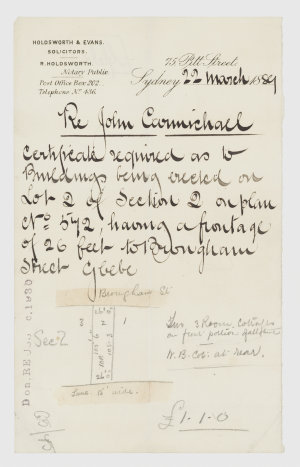 HOLDSWORTH & EVANS.
SOLICITORS.
R. HOLDSWORTH.
Notary Public.
Post Office Box 202.
Telephone No. 436.
75, Pitt Street,
Sydney 22 March 1889
Re John Carmichael
Certificate required as to
Buildings being erected on
Lot 2 of Section 2 on plan
No. 572, having a frontage
of 26 feet to Brougham
Street Glebe
Brougham St
Sec 2
3
2
1
Lane wide.
Two 3 Room Cottages
on front portion
W.B. Cot. at rear.
£1-1-0